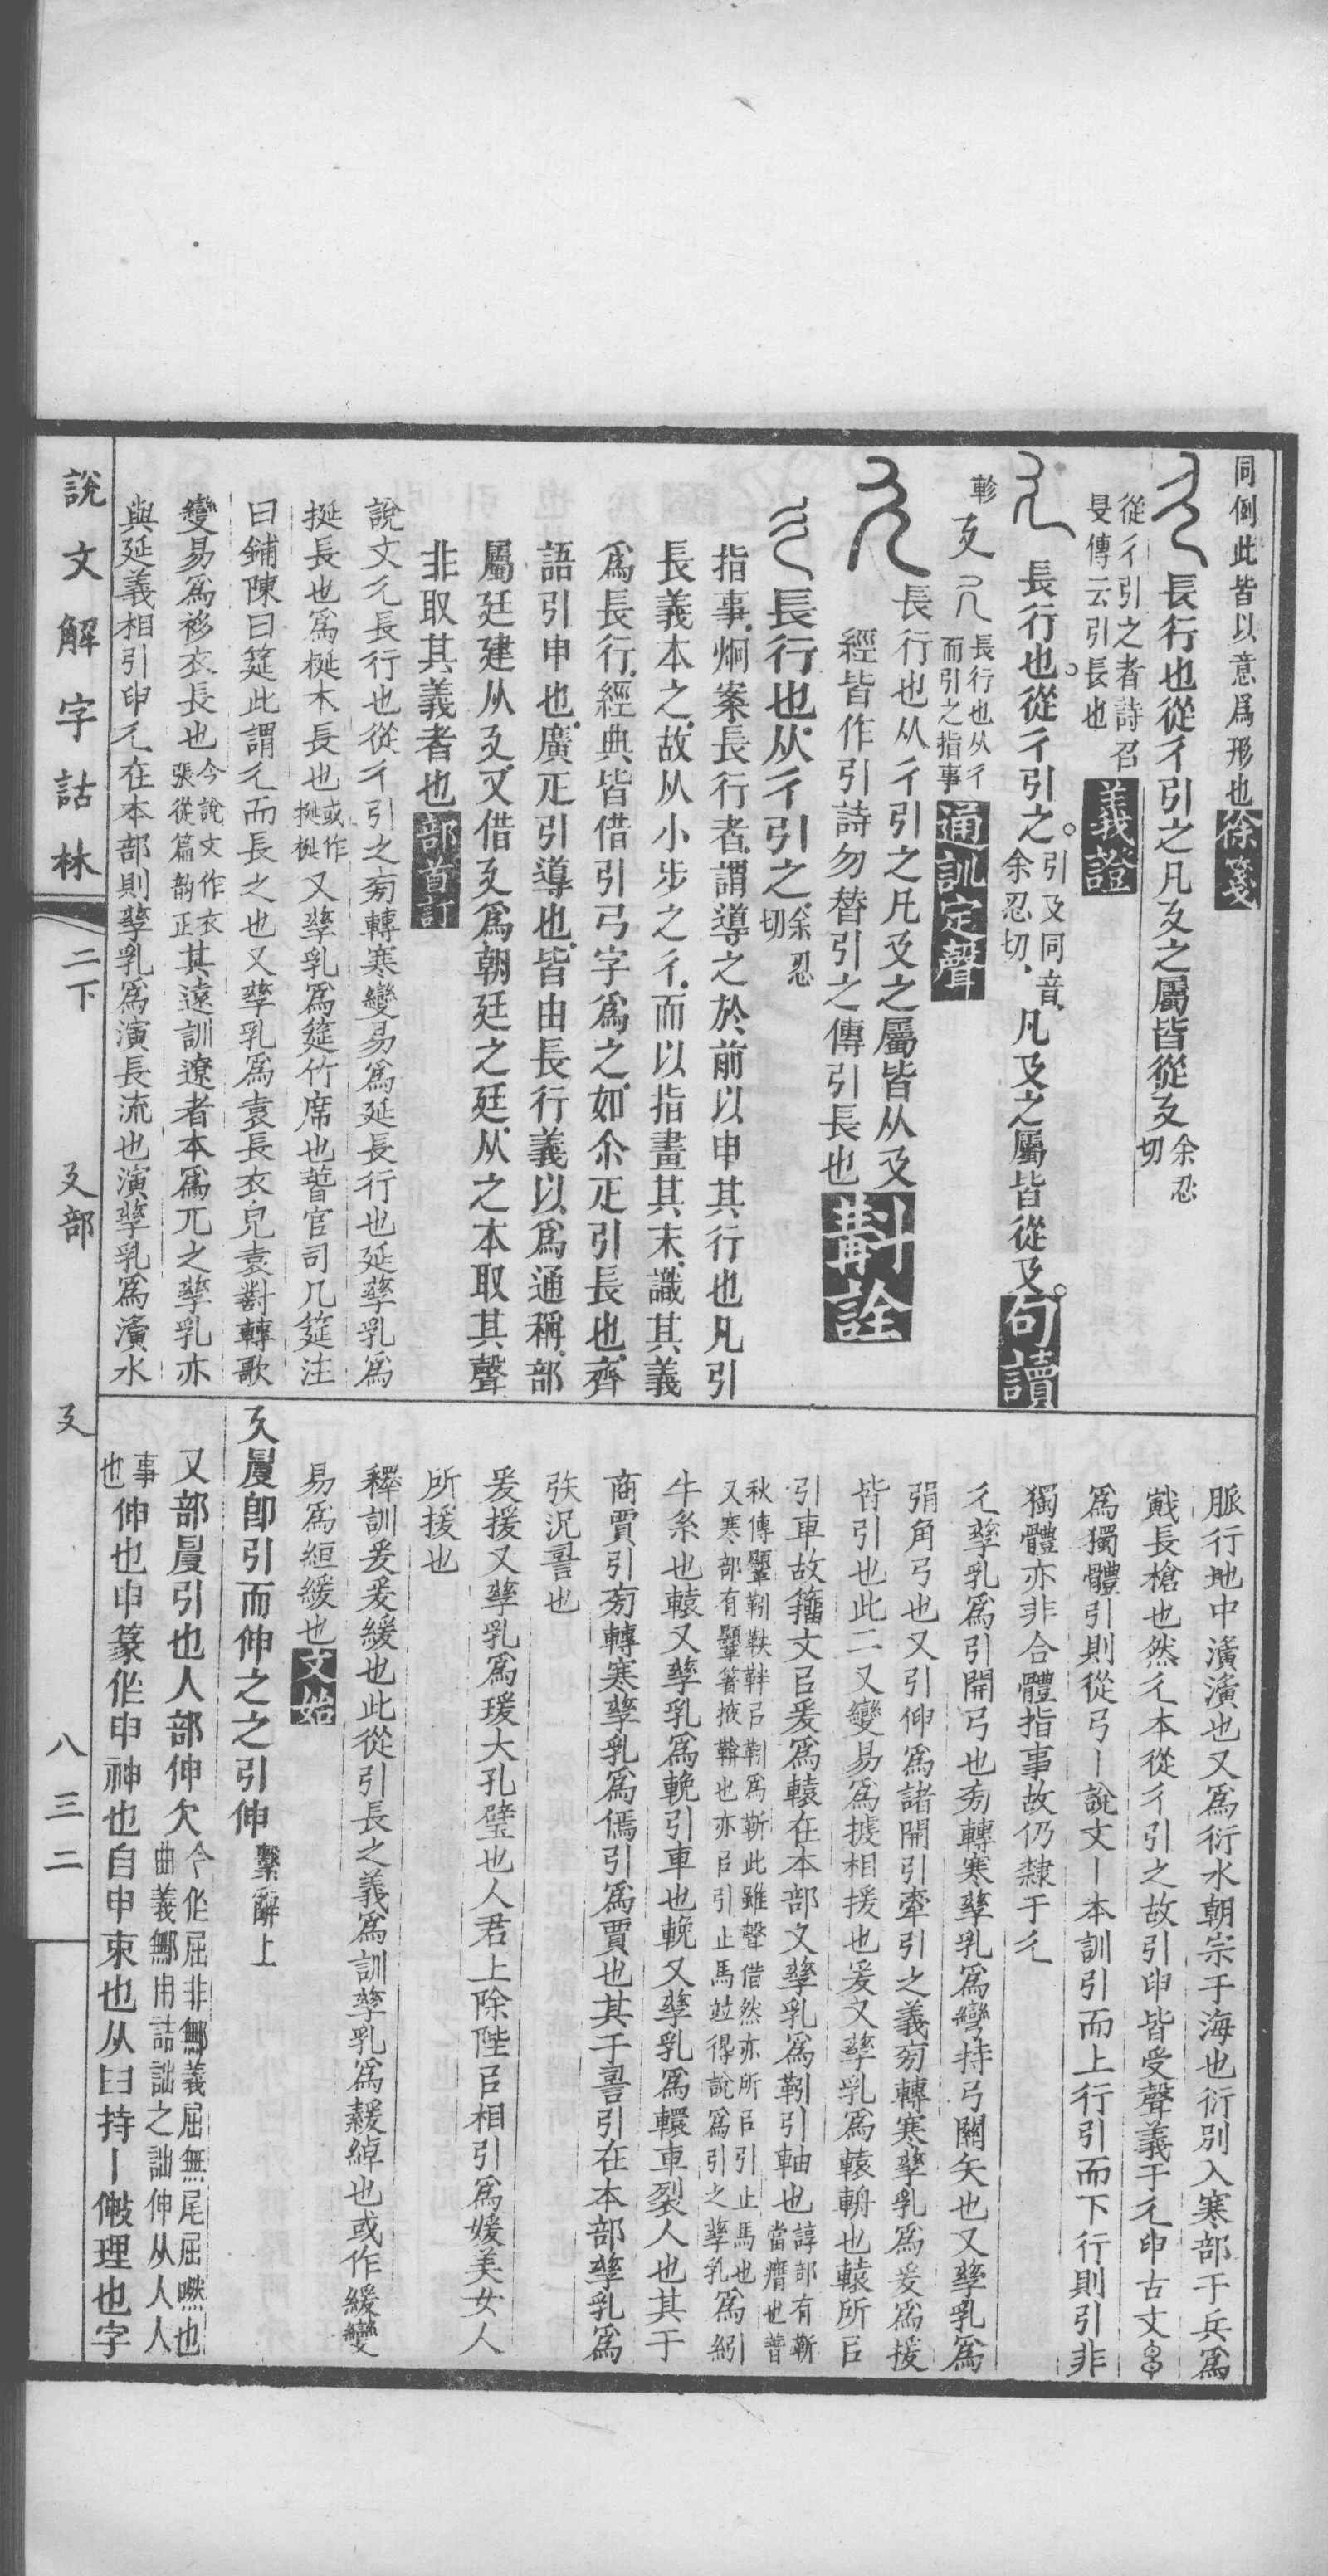 同例此皆以意爲形也徐箋
長行也從彳引之凡廴之屬皆從廴余忍切
從彳引之者詩召旻傳云引長也義證
長行也從彳引之引廴同音余忍切凡廴之屬皆從廴句讀
軫廴長行也从彳而引之指事通訓定聲
長行也从彳引之凡廴之屬皆从廴
經皆作引詩勿替引之傳引長也斠詮
長行也从彳引之余忍切
指事炯案長行者謂導之於前以申其行也凡引
長義本之故从小步之彳而以指畫其末識其義
爲長行經典皆借引弓字爲之如尒疋引長也齊
語引申也廣疋引導也皆由長行義以爲通稱部
屬廷建从廴又借廴爲朝廷之廷从之本取其聲
非取其義者也部首訂
說文廴長行也從彳引之旁轉寒變易爲延長行也延孳乳爲
挻長也爲梴木長也或作又孳乳爲筵竹席也春官司几筵注
曰鋪陳曰筵此謂廴而長之也又孳乳爲袁長衣皃袁對轉歌
變易爲袳衣長也今說文作衣張從篇韵正其遠訓遼者本爲兀之孳乳亦
與延義相引申廴在本部則孳乳爲演長流也演孳乳爲濥水
脈行地中濥濥也又爲衍水朝宗于海也衍別入寒部于兵爲
戭長槍也然廴本從彳引之故引申皆受聲義于廴申古文
爲獨體引則從弓丨說文丨本訓引而上行引而下行則引非
獨體亦非合體指事故仍隸于廴
廴孳乳爲引開弓也旁轉寒孳乳爲彎持弓關矢也又孳乳爲
弲角弓也又引伸爲諸開引牽引之義旁轉寒孳乳爲爰爲援
皆引也此二又變易爲㨿相援也爰又孳乳爲轅輈也轅所㠯
引車故籒文㠯爰爲轅在本部又孳乳爲靷引軸也諄部有靳當膺也
秋傳靷㠯靷爲靳此雖聲借然亦所㠯引止馬也又寒部有著掖鞥也亦㠯引止馬竝得說爲引之孳乳爲紖
牛系也轅又孳乳爲輓引車也輓又孳乳爲轘車裂人也其于
商賈引旁轉寒孳乳爲傿引爲賈也其于引在本部孳乳爲
矤況也
爰援又孳乳爲瑗大孔璧也人君上除陛㠯相引爲媛美女人
所援也
釋訓爰爰緩也此從引長之義爲訓孳乳爲繛也或作緩變
易爲緩也文始
廴㫳卽引而伸之之引伸繫辭上
又部㫳引也人部伸欠今作屈非義屈無尾屈也曲義用詰詘之詘伸从人人
事也伸也申篆作申神也自申束也从臼持丨理也字
說文解字詁林 二下 廴部 廴 八三二